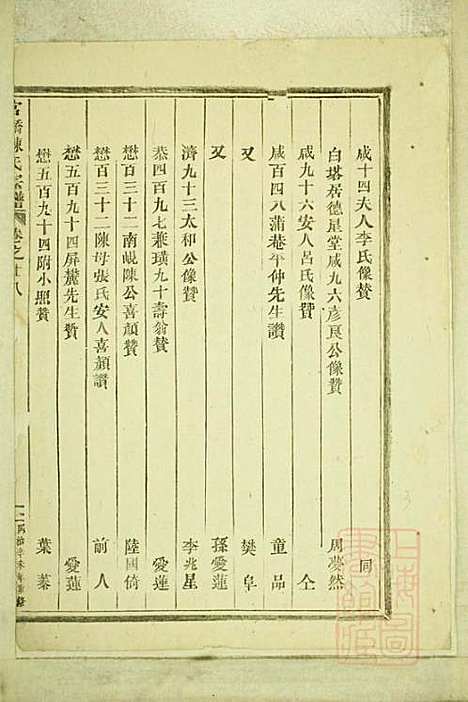 咸十四夫人李氏像贊 同
白塔居德星堂咸九六彥良公像贊 周夢然
咸九十六安人呂氏像贊 仝
咸百四八蒲巷平仲先生讚 童品
又 樊阜
又 孫愛蓮
濟九十三太和公像贊 李兆星
恭四百九七兼璜九十壽翁贊 愛蓮
懋百三十二南峴陳公喜顏贊 陸國倚
懋百三十二陳母張氏安人喜顏讚 前人
懋五百九十四屏麓先生贊 愛蓮
懋五百九十四附小照贊 葉蓁
官橋陳氏宗譜 卷之廿八